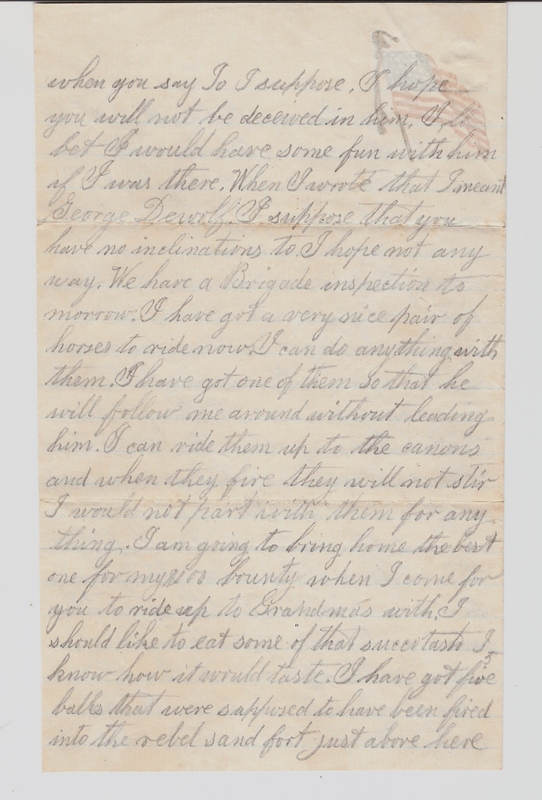 when you say To I suppose. I hope
you will not be deceived in him. I,ll
bet I would have some fun with him
if I was there. When I wrote that I meant
George Dewolf. I suppose that you
have no inclinations to. I hope not any
way. We have a Brigade inspection to
morrow. I have got a very nice pair of
horses to ride now. I can do anything with
them. I have got one of them so that he
will follow me around without leading
him. I can ride them up to the canons
and when they fire they will not stir
I would not part with them for any
thing. I am going to bring home the best
one for my $100 bounty when I come for
you to ride up to Grandmas with. I
should like to eat some of that succertash I
know how it would taste. I have got five
balls that were sapposed to have been fired
into the rebel sand fort just above here